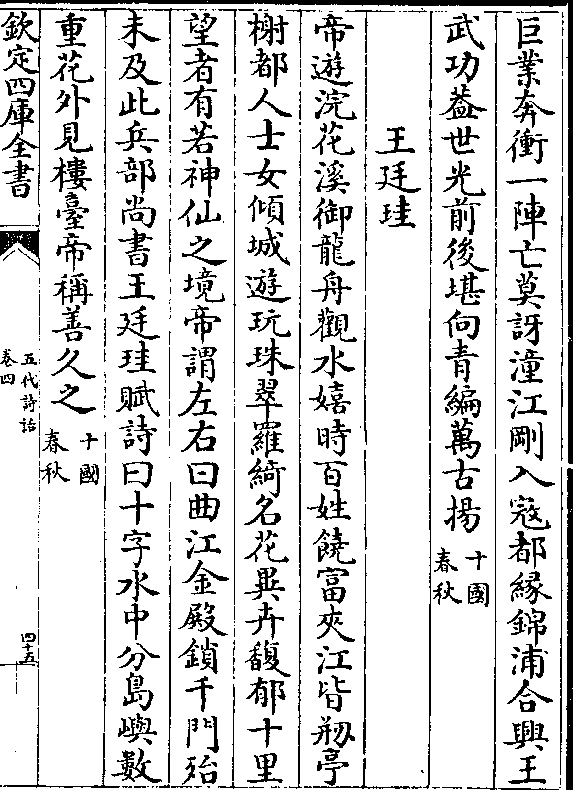 巨業奔衝一陣亡莫訝潼江剛入寇都縁錦浦合興王
武功葢世光前後堪向青編萬古揚十國春秋
王廷珪
帝遊浣花溪御龍舟觀水嬉時百姓饒富夾江皆剏亭
榭都人士女傾城遊玩珠翠羅綺名花異卉馥郁十里
望者有若神仙之境帝謂左右曰曲江金殿鎖千門殆
未及此兵部尚書王廷珪賦詩曰十字水中分島嶼數
重花外見樓臺帝稱善久之十國春秋
欽定四庫全書
五代詩話
卷四
四十五